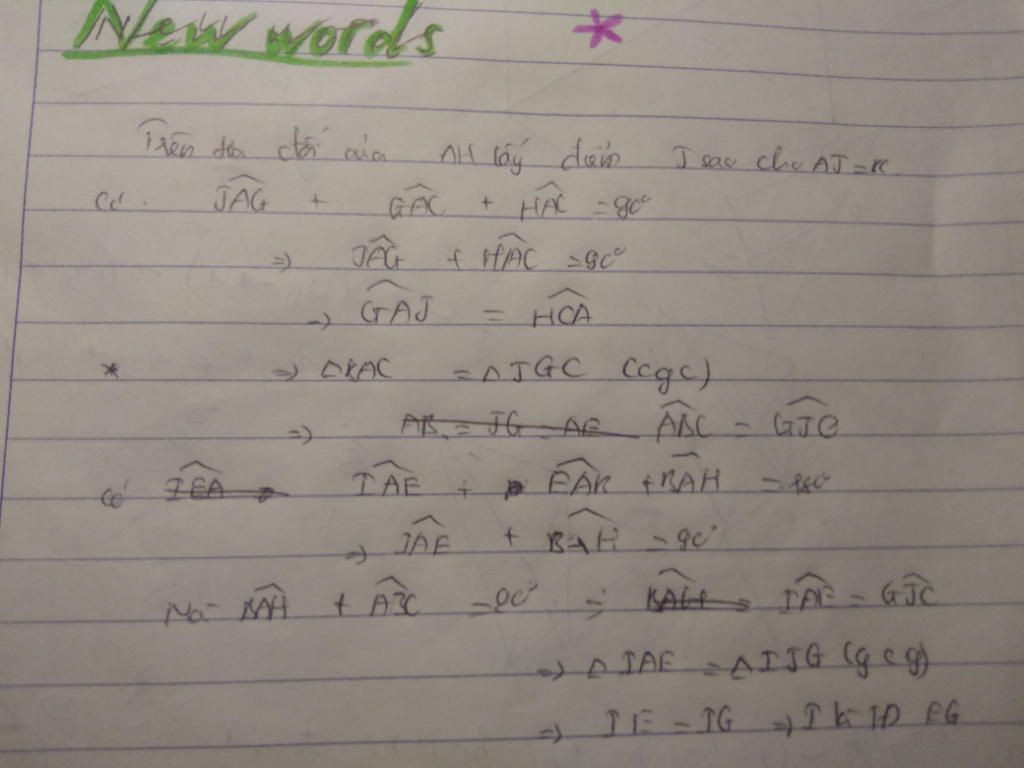 New words *
Trên tia đối của AH lấy điểm J sao cho AJ = BC
Có. JAG + GAC + HAC = 180°
=> JAG + HAC = 90°
=> GAJ = HCA
* => △BAC = △JGC (cgc)
=> AB = JG = AE ABC = GJC
Có IEA IAE + EAB + BAH = 180°
=> IAE + BAH = 90°
Mà BAH + ABC = 90° => BAH IAE = GJC
=> △IAE = △IJG (gcg)
=> IE = IG => I là TĐ EG